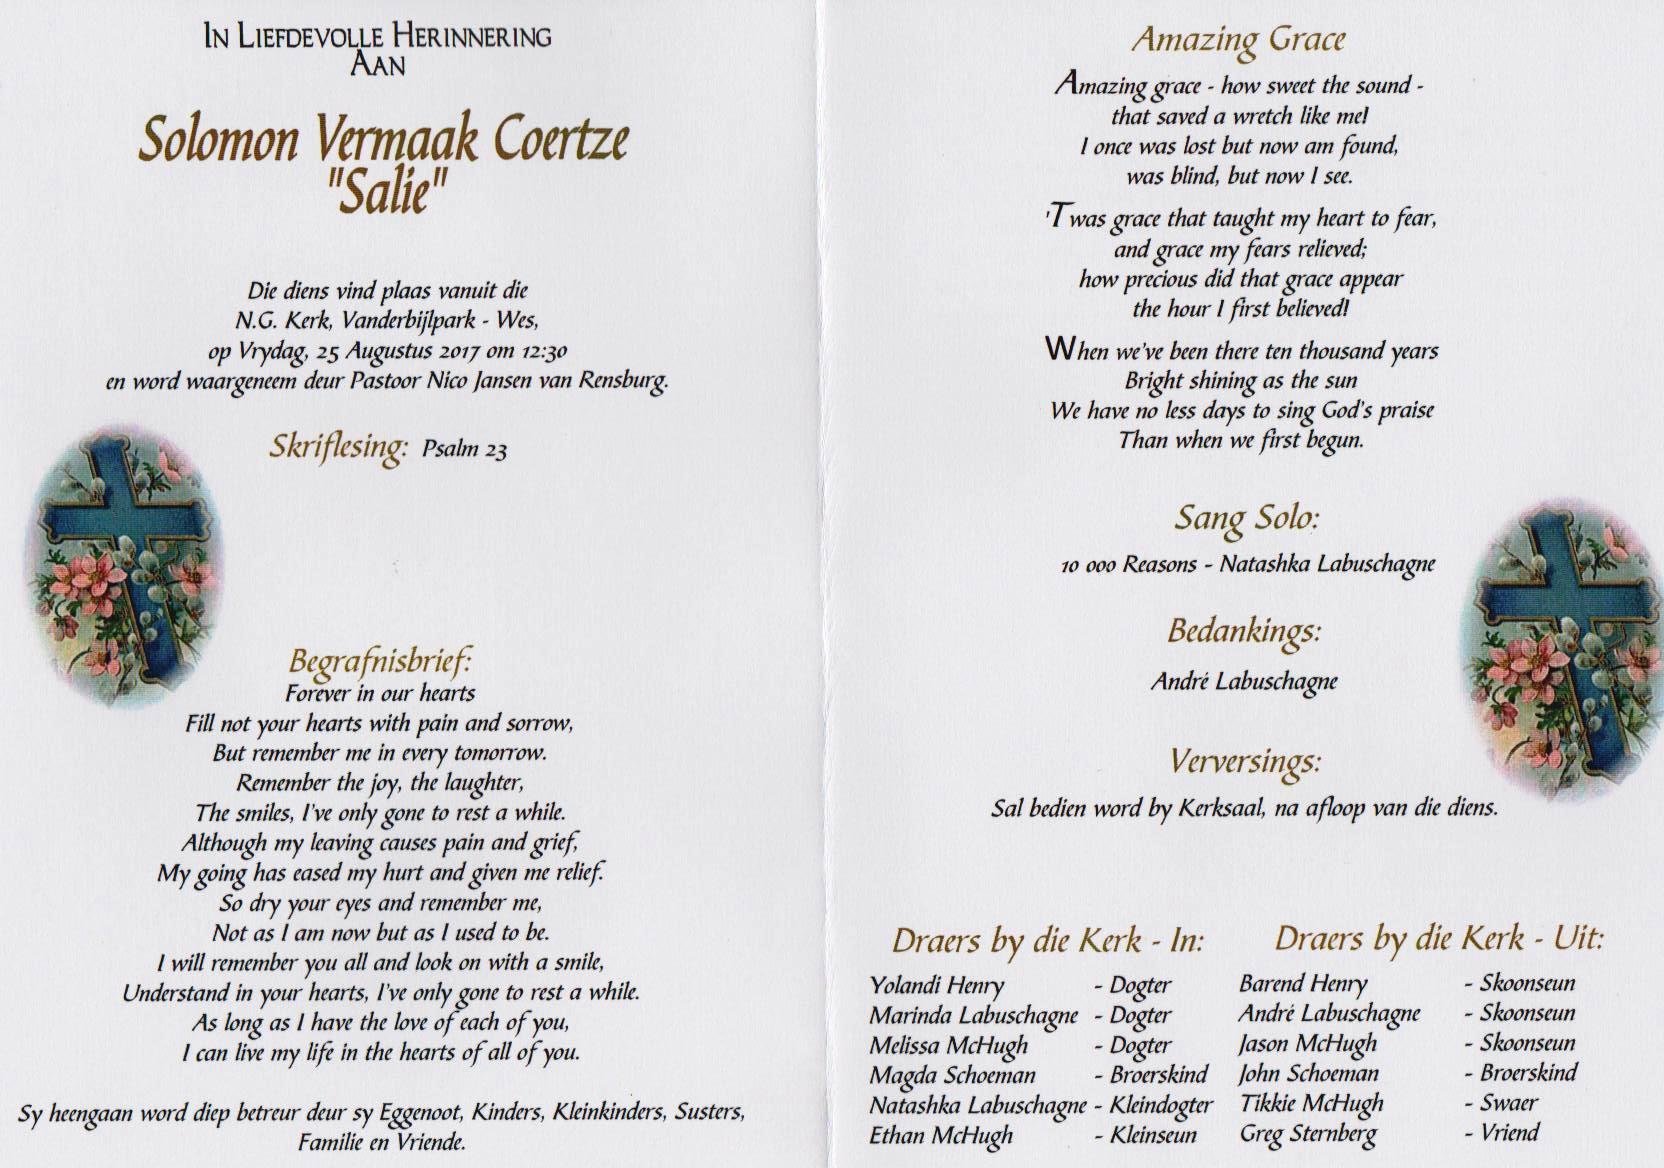 In Liefdevolle Herinnering
Aan
Solomon Vermaak Coertze
"Salie"
Die diens vind plaas vanuit die
N.G. Kerk, Vanderbijlpark - Wes,
op Vrydag, 25 Augustus 2017 om 12:30
en word waargeneem deur Pastoor Nico Jansen van Rensburg.
Skriflesing: Psalm 23
Begrafnisbrief:
Forever in our hearts
Fill not your hearts with pain and sorrow,
But remember me in every tomorrow.
Remember the joy, the laughter,
The smiles, I've only gone to rest a while.
Although my leaving causes pain and grief,
My going has eased my hurt and given me relief.
So dry your eyes and remember me,
Not as I am now but as I used to be.
I will remember you all and look on with a smile,
Understand in your hearts, I've only gone to rest a while.
As long as I have the love of each of you,
I can live my life in the hearts of all of you.
Sy heengaan word diep betreur deur sy Eggenoot, Kinders, Kleinkinders, Susters,
Familie en Vriende.
Amazing Grace
Amazing grace - how sweet the sound -
that saved a wretch like me!
I once was lost but now am found,
was blind, but now I see.
'Twas grace that taught my heart to fear,
and grace my fears relieved;
how precious did that grace appear
the hour I first believed!
When we've been there ten thousand years
Bright shining as the sun
We have no less days to sing God's praise
Than when we first begun.
Sang Solo:
10 000 Reasons - Natashka Labuschagne
Bedankings:
André Labuschagne
Verversings:
Sal bedien word by Kerksaal, na afloop van die diens.
Draers by die Kerk - In:
Yolandi Henry - Dogter
Marinda Labuschagne - Dogter
Melissa McHugh - Dogter
Magda Schoeman - Broerskind
Natashka Labuschagne - Kleindogter
Ethan McHugh - Kleinseun
Draers by die Kerk - Uit:
Barend Henry - Skoonseun
André Labuschagne - Skoonseun
Jason McHugh - Skoonseun
John Schoeman - Broerskind
Tikkie McHugh - Swaer
Greg Sternberg - Vriend